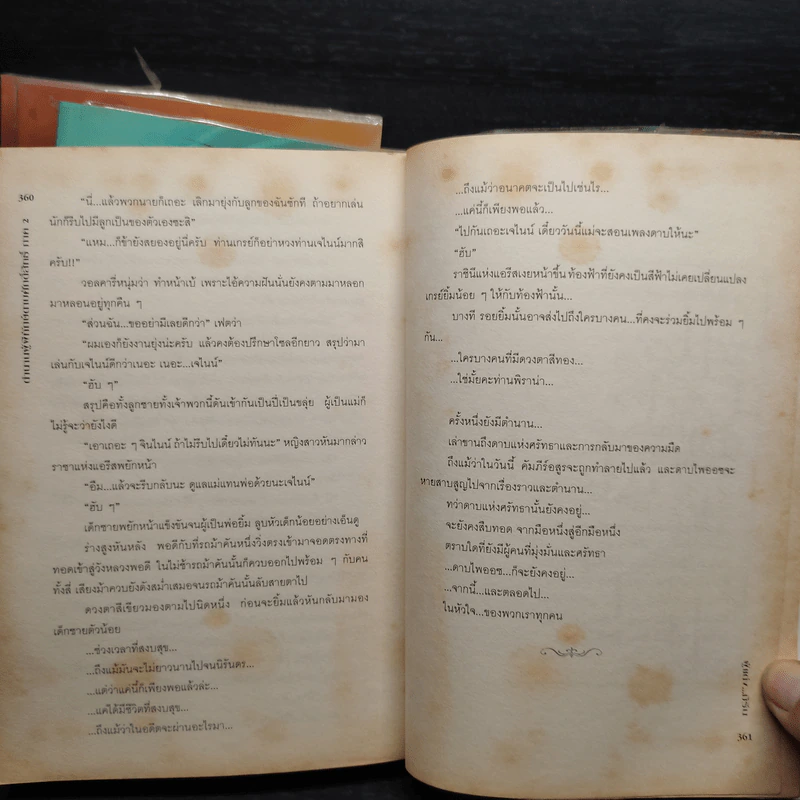 360
ตำนานผู้พิทักษ์ดาบศักดิ์สิทธิ์ ภาค 2
"นี่...แล้วพวกนายก็เถอะ เลิกมายุ่งกับลูกของฉันซักที ถ้าอยากเล่น
นักก็รีบไปมีลูกเป็นของตัวเองซะสิ"
"แหม...ก็ข้ายังสยองอยู่นี่ครับ ท่านเกรย์ก็อย่าหวงท่านเจไนน์มากสิ
ครับ!!"
วอลคารี่หนุ่มว่า ทำหน้าเบ้ เพราะไอ้ความฝันนั่นยังคงตามมาหลอก
มาหลอนอยู่ทุกคืน ๆ
"ส่วนฉัน...ขออย่ามีเลยดีกว่า" เฟตว่า
"ผมเองก็ยังงานยุ่งน่ะครับ แล้วคงต้องปรึกษาไซลอีกยาว สรุปว่ามา
เล่นกับเจไนน์ดีกว่าเนอะ เนอะ...เจไนน์"
"ฮับ ๆ"
สรุปคือทั้งลูกชายทั้งเจ้าพวกนี้ดันเข้ากันเป็นปี่เป็นขลุ่ย ผู้เป็นแม่ก็
ไม่รู้จะว่ายังไงดี
"เอาเถอะ ๆ จินไนน์ ถ้าไม่รีบไปเดี๋ยวไม่ทันนะ" หญิงสาวหันมากล่าว
ราชาแห่งแอรีสพยักหน้า
"อืม...แล้วจะรีบกลับนะ ดูแลแม่แทนพ่อด้วยนะเจไนน์"
"ฮับ ๆ"
เด็กชายพยักหน้าแข็งขันจนผู้เป็นพ่อยิ้ม ลูบหัวเด็กน้อยอย่างเอ็นดู
ร่างสูงหันหลัง พอดีกับที่รถม้าคันหนึ่งวิ่งตรงเข้ามาจอดตรงทางที่
ทอดเข้าสู่วังหลวงพอดี ในไม่ช้ารถม้าคันนั้นก็ควบออกไปพร้อม ๆ กับคน
ทั้งสี่ เสียงม้าควบยังดังสม่ำเสมอจนรถม้าคันนั้นลับสายตาไป
ดวงตาสีเขียวมองตามไปนิดหนึ่ง ก่อนจะยิ้มแล้วหันกลับมามอง
เด็กชายตัวน้อย
...ช่วงเวลาที่สงบสุข...
...ถึงแม้มันจะไม่ยาวนานไปจนนิรันดร...
...แต่ว่าแค่นี้ก็เพียงพอแล้วล่ะ...
...แค่ได้มีชีวิตที่สงบสุข...
...ถึงแม้ว่าในอดีตจะผ่านอะไรมา...
...ถึงแม้ว่าอนาคตจะเป็นไปเช่นไร...
...แค่นี้ก็เพียงพอแล้ว...
"ไปกันเถอะเจไนน์ เดี๋ยววันนี้แม่จะสอนเพลงดาบให้นะ"
"ฮับ"
ราชินีแห่งแอรีสเงยหน้าขึ้น ท้องฟ้าที่ยังคงเป็นสีฟ้าไม่เคยเปลี่ยนแปลง
เกรย์ยิ้มน้อย ๆ ให้กับท้องฟ้านั้น...
บางที รอยยิ้มนั้นอาจส่งไปถึงใครบางคน...ที่คงจะร่วมยิ้มไปพร้อม ๆ
กัน...
...ใครบางคนที่มีดวงตาสีทอง...
...ใช่มั้ยคะท่านพิราน่า...
ครั้งหนึ่งยังมีตำนาน...
เล่าขานถึงดาบแห่งศรัทธาและการกลับมาของความมืด
ถึงแม้ว่าในวันนี้ คัมภีร์อสูรจะถูกทำลายไปแล้ว และดาบไพออซจะ
หายสาบสูญไปจากเรื่องราวและตำนาน...
ทว่าดาบแห่งศรัทธานั้นยังคงอยู่...
จะยังคงสืบทอด จากมือหนึ่งสู่อีกมือหนึ่ง
ตราบใดที่ยังมีผู้คนที่มุ่งมั่นและศรัทธา
...ดาบไพออซ...ก็จะยังคงอยู่...
...จากนี้...และตลอดไป...
ในหัวใจ...ของพวกเราทุกคน
361